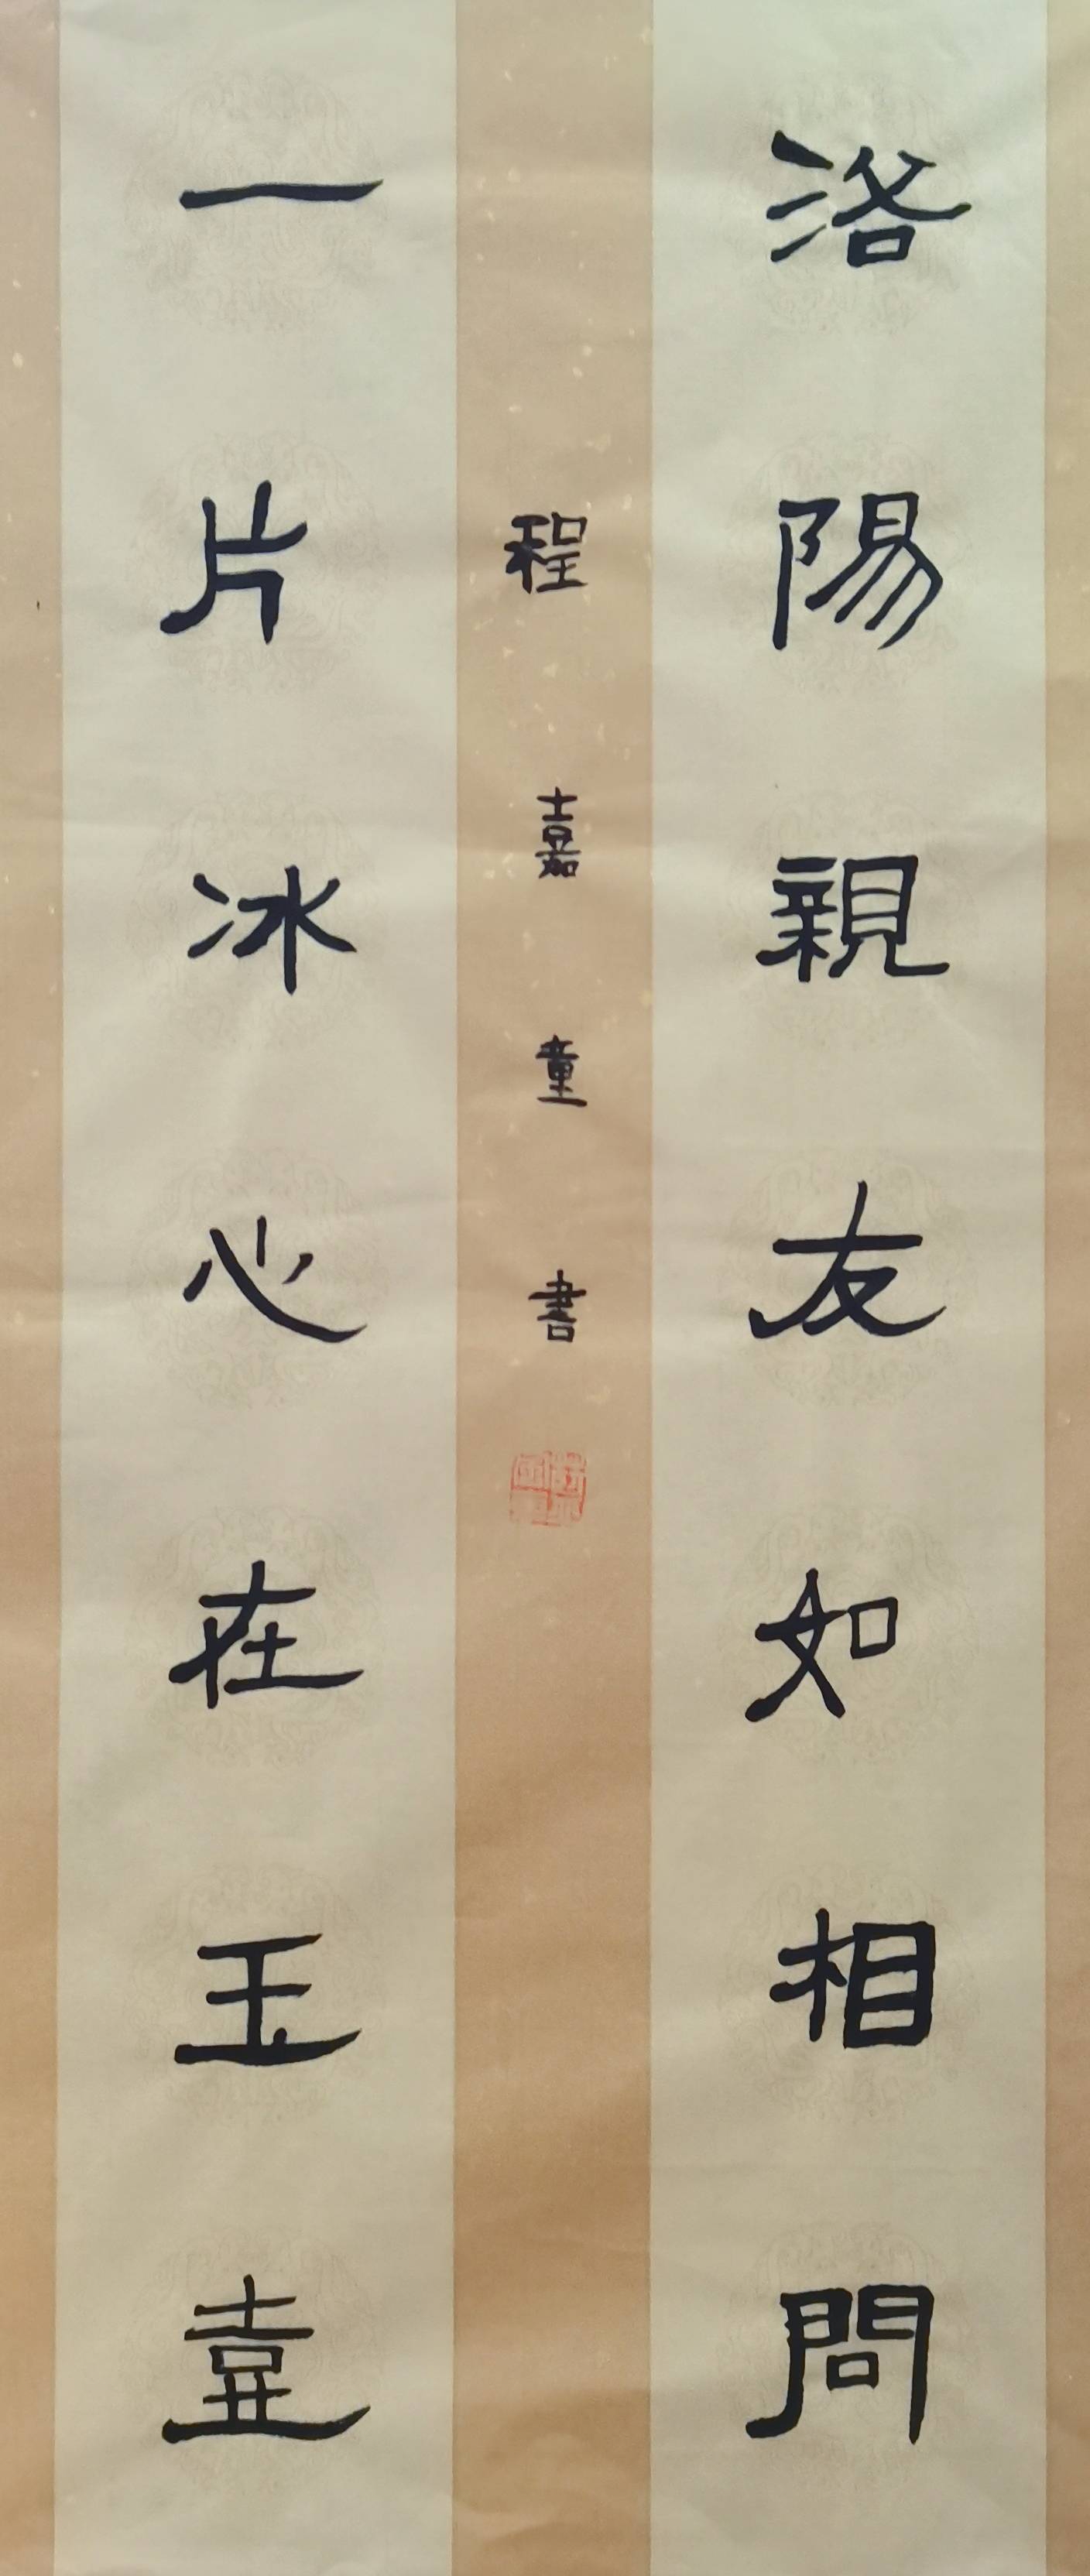 洛陽親友如相問
一片冰心在玉壺
程嘉童書